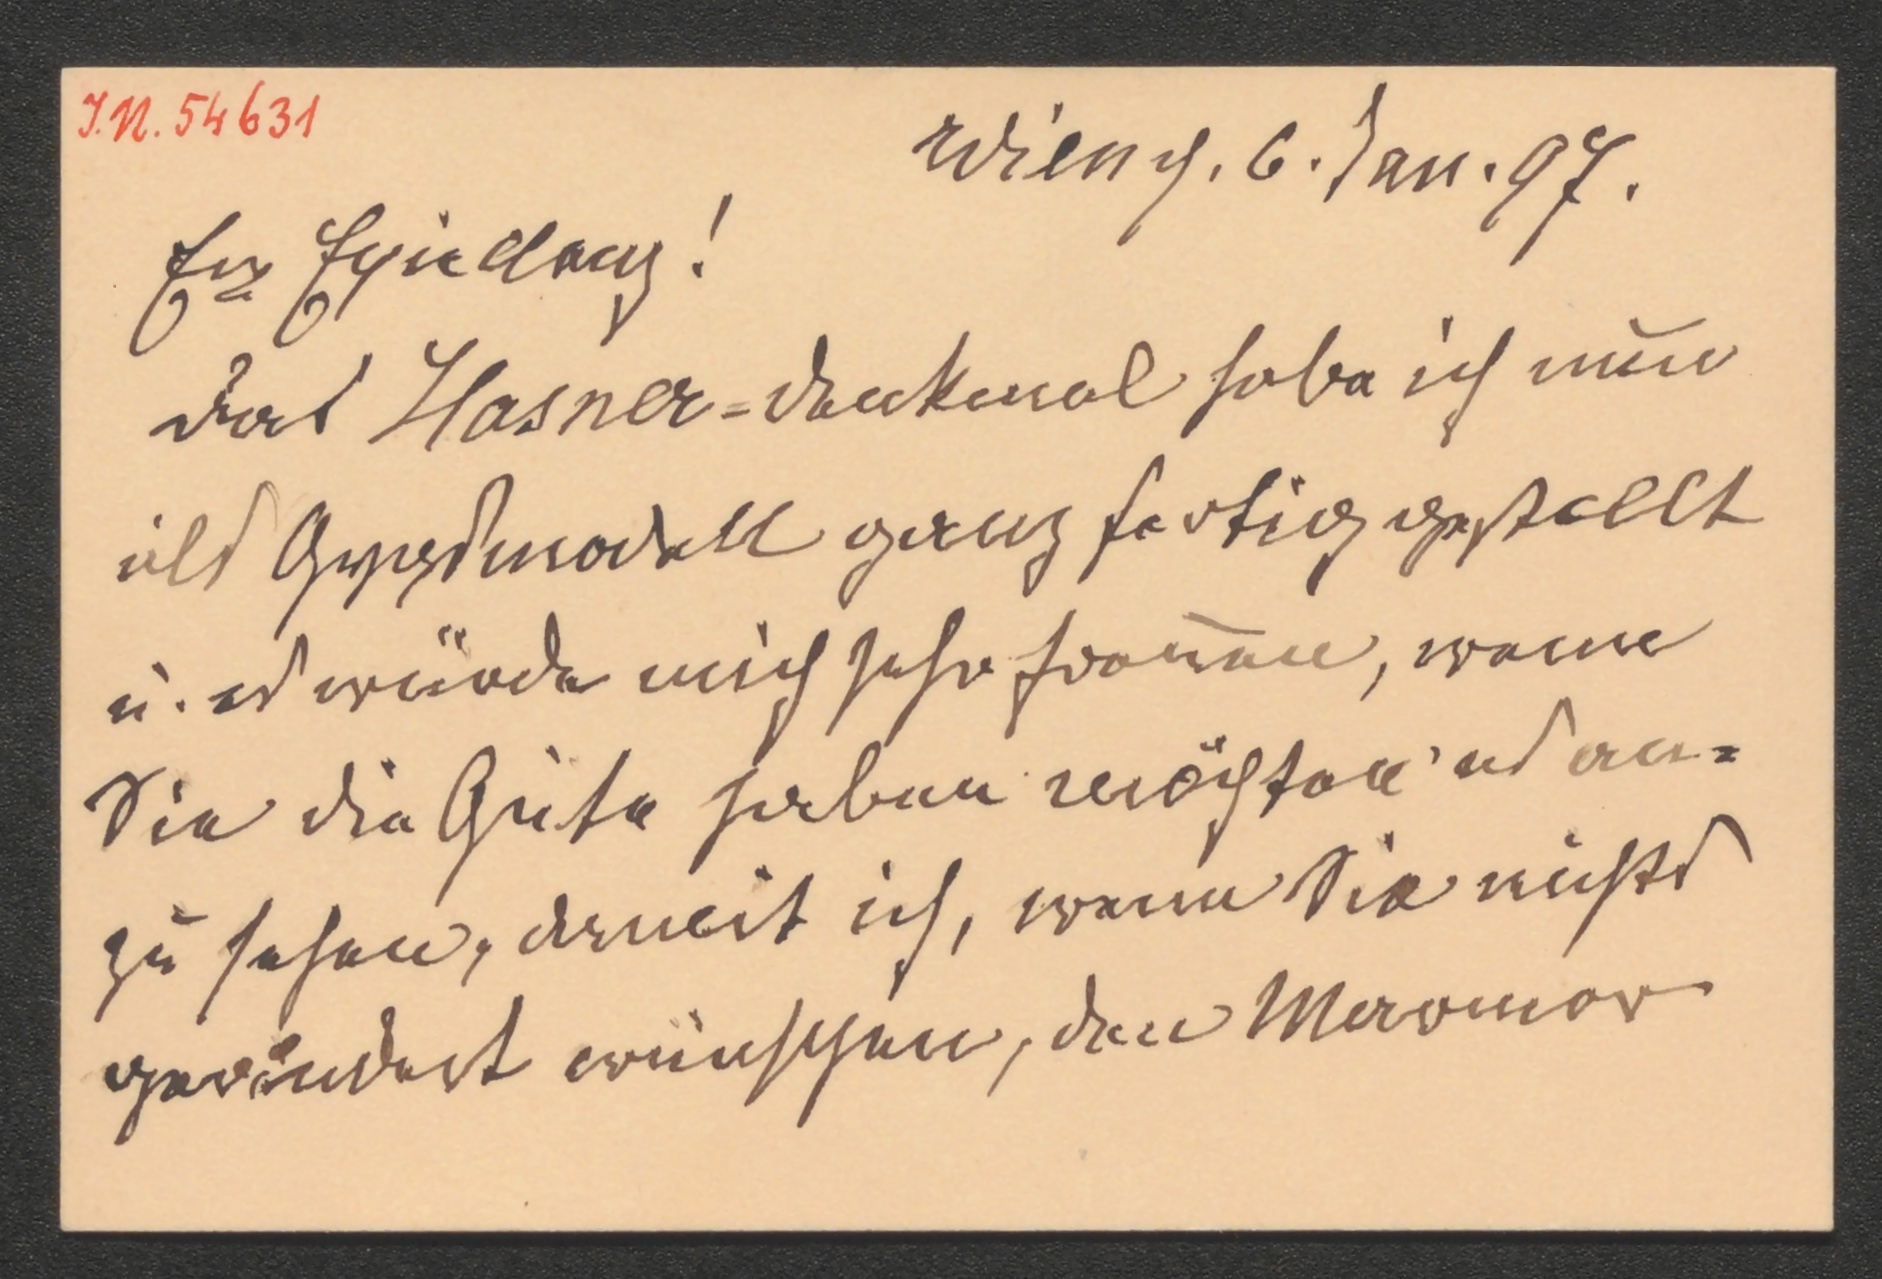 I.N. 54631
Wien, 6. Jan. 97.
Ew Excellenz!
Das Hasner=Denkmal habe ich nun
als Gypsmodell ganz fertig gestellt
u. es würde mich sehr freuen, wenn
Sie die Güte haben möchten es an=
zu sehen, damit ich, wenn Sie nichts
geändert wünschen, den Marmor